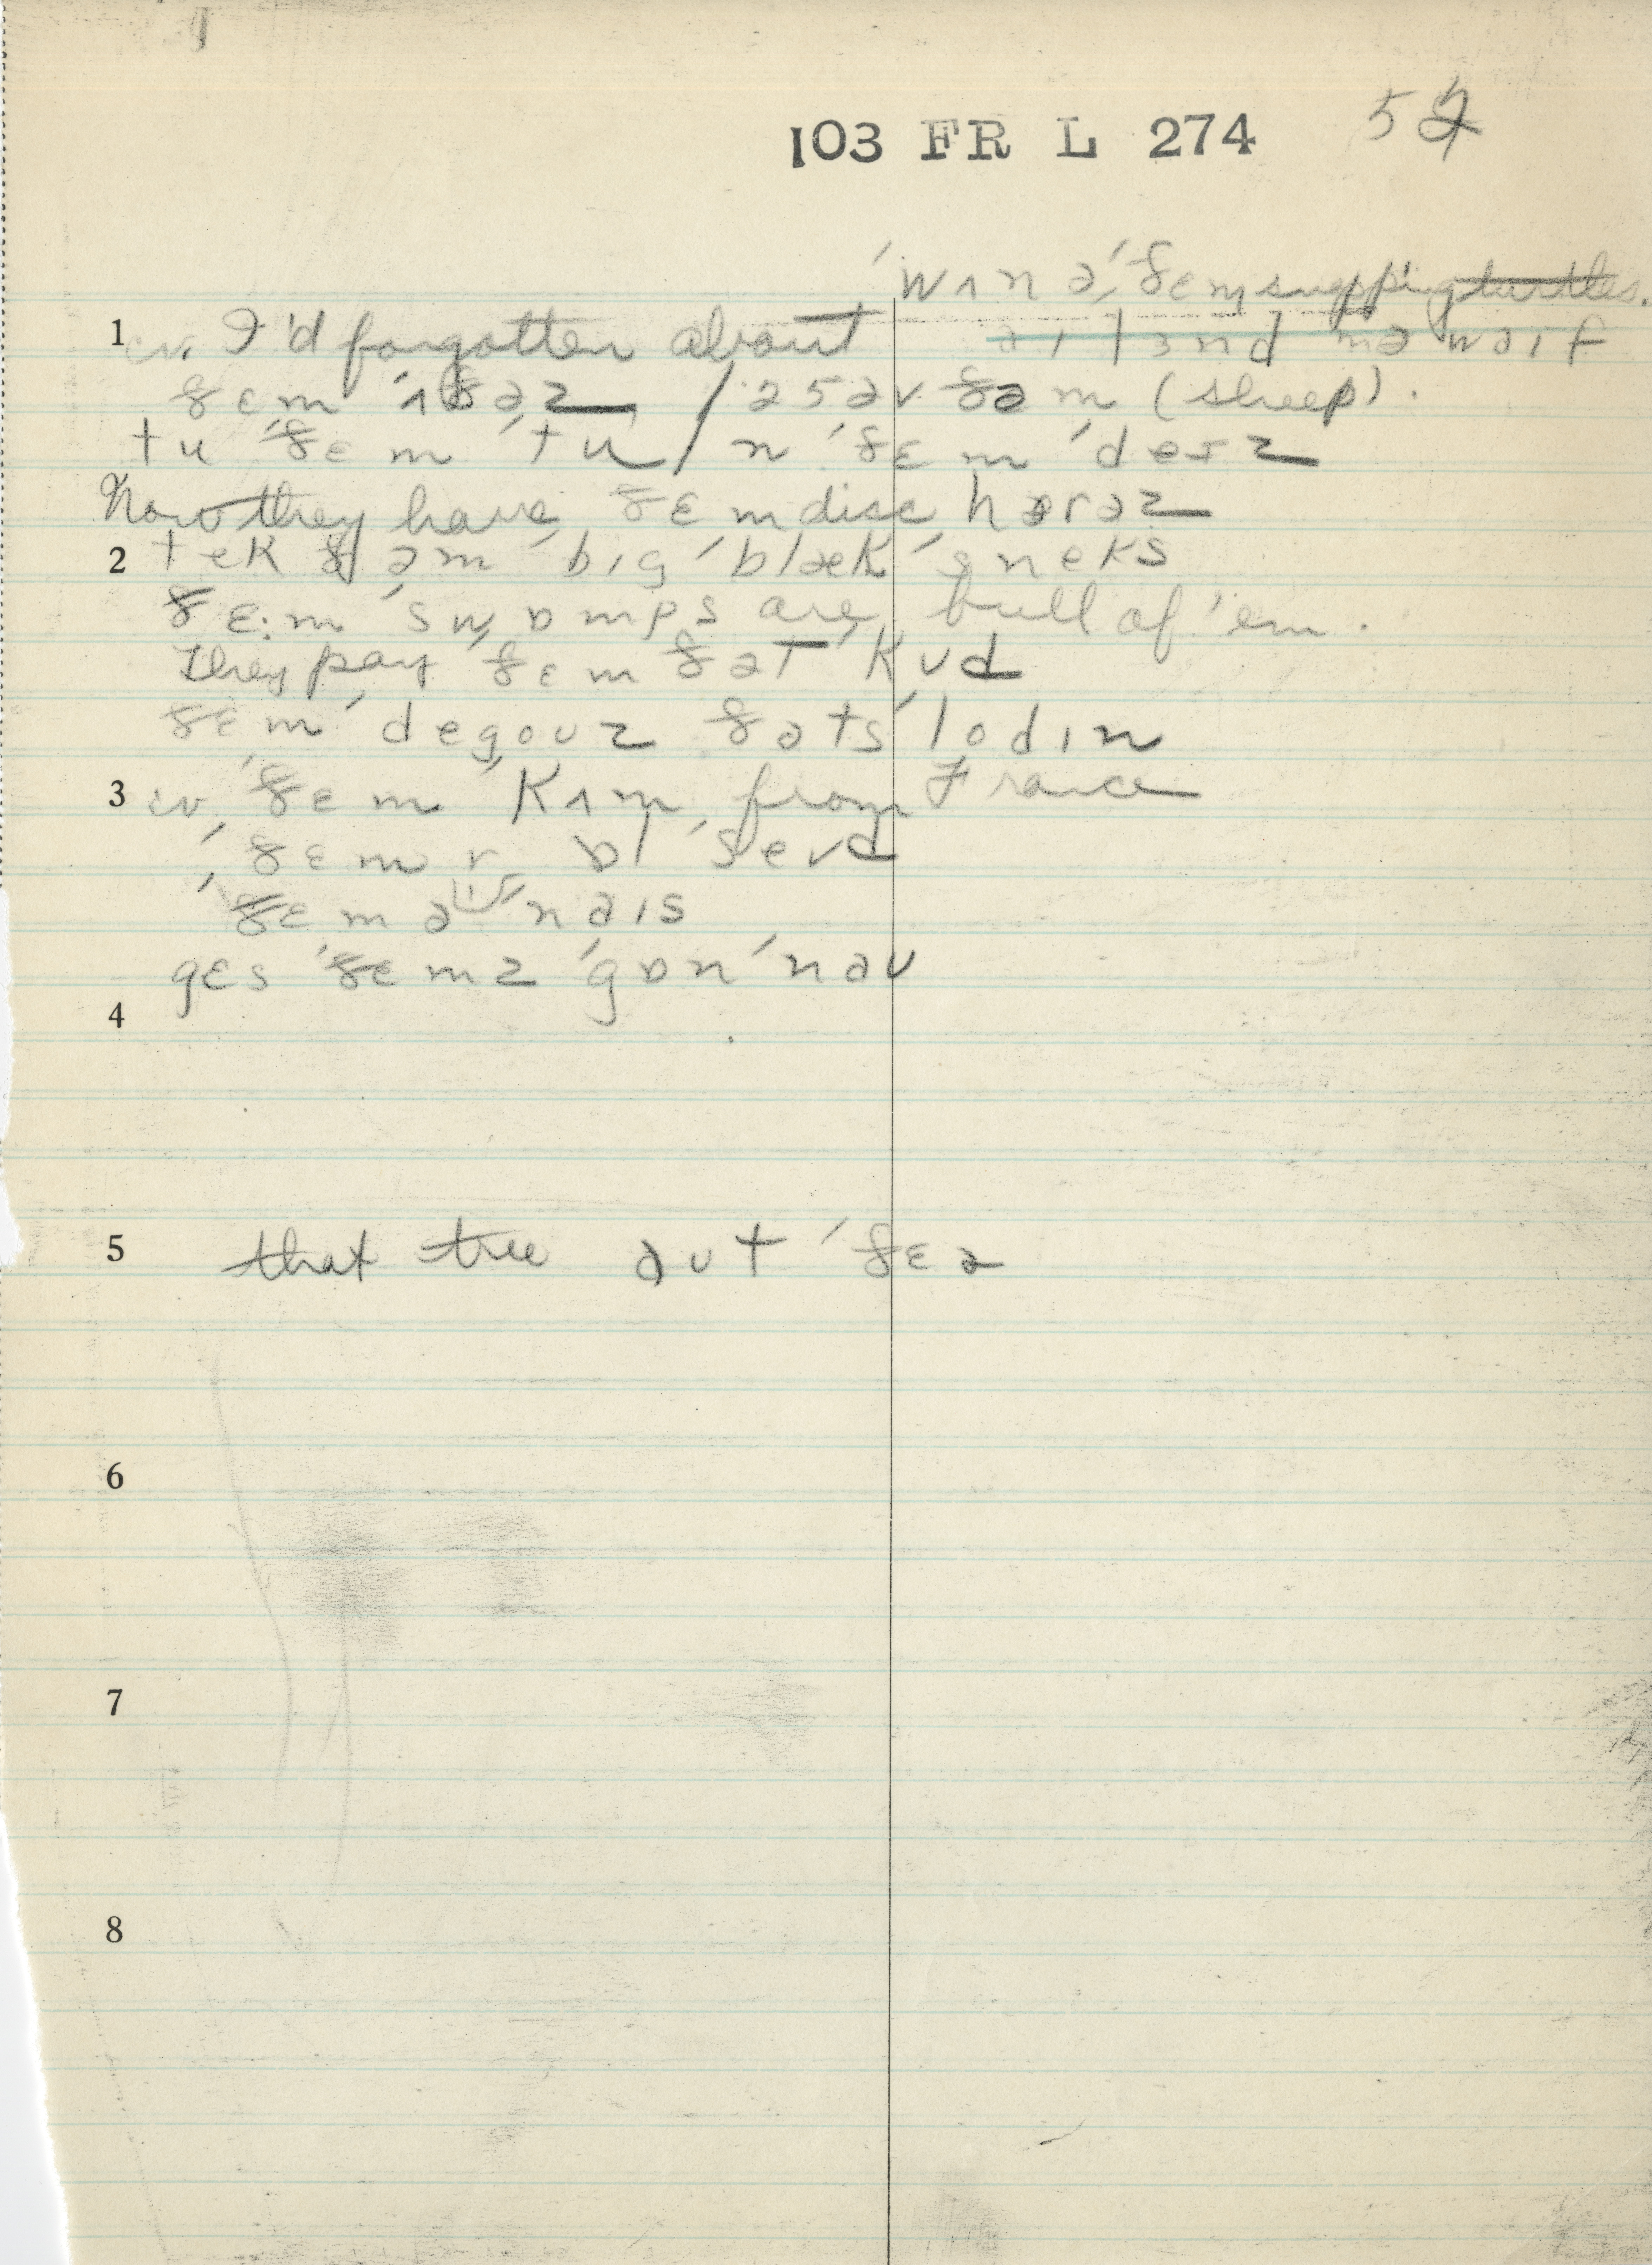 103 FR L 274 52
ˈwʌn ə ˈðɛm snapping turtles.
1 cv. I'd forgotten about aɪ tɜnd mə waɪf
ðɛm ˈʌðəz / 25 əv ðəm (sheep).
tu ˈðɛm ˈtu / n ˈðɛm ˈdeɪz
Now they have ðɛm disc hərəz
2 tek ðəm ˈbɪg ˈblæk ˈsneks
ðɛ:m ˈswɒmps are full of 'em.
They pay ˈðɛm ðət ˈkʊd
ðɛm ˈdegoʊz ðəts ˈlodɪn
3 cv. ˈðɛm ˈkʌm from France
ˈðɛm r ɒl ˈseʊd
ˈðɛm ə ˈnaɪs
gɛs ˈðɛmz ˈgɒn ˈnaʊ
4
5 that tree aʊt ˈðɛə
6
7
8